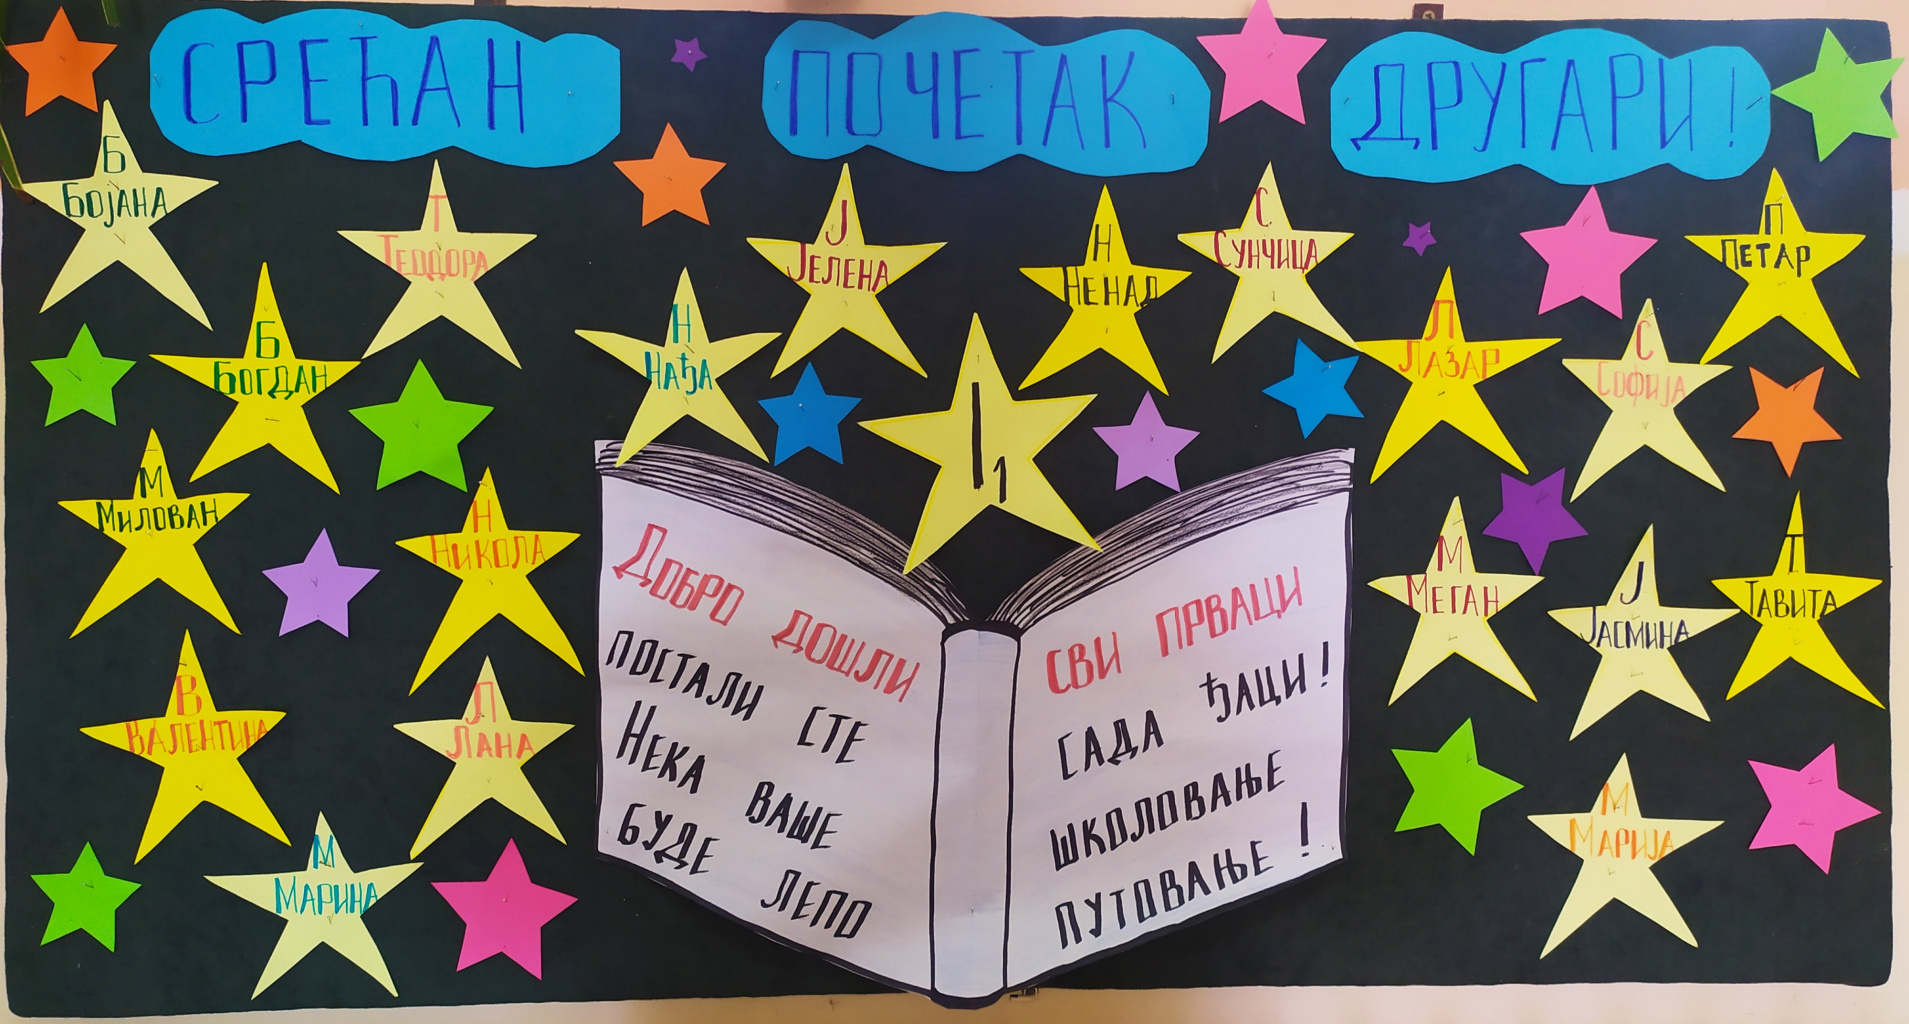 СРЕЋАН ПОЧЕТАК ДРУГАРИ!
Б
БОЈАНА
Т
ТЕОДОРА
Б
БОГДАН
М
МИЛОВАН
Н
НИКОЛА
В
ВАЛЕНТИНА
Л
ЛАНА
М
МАРИНА
Н
НАЂА
Ј
ЈЕЛЕНА
Н
НЕНАД
С
СУНЧИЦА
Л
ЛАЗАР
С
СОФИЈА
П
ПЕТАР
М
МЕГАН
Ј
ЈАСМИНА
Т
ТАВИТА
М
МАРИЈА
I1
ДОБРО ДОШЛИ СВИ ПРВАЦИ
ПОСТАЛИ СТЕ САДА ЂАЦИ!
НЕКА ВАШЕ ШКОЛОВАЊЕ
БУДЕ ЛЕПО ПУТОВАЊЕ!